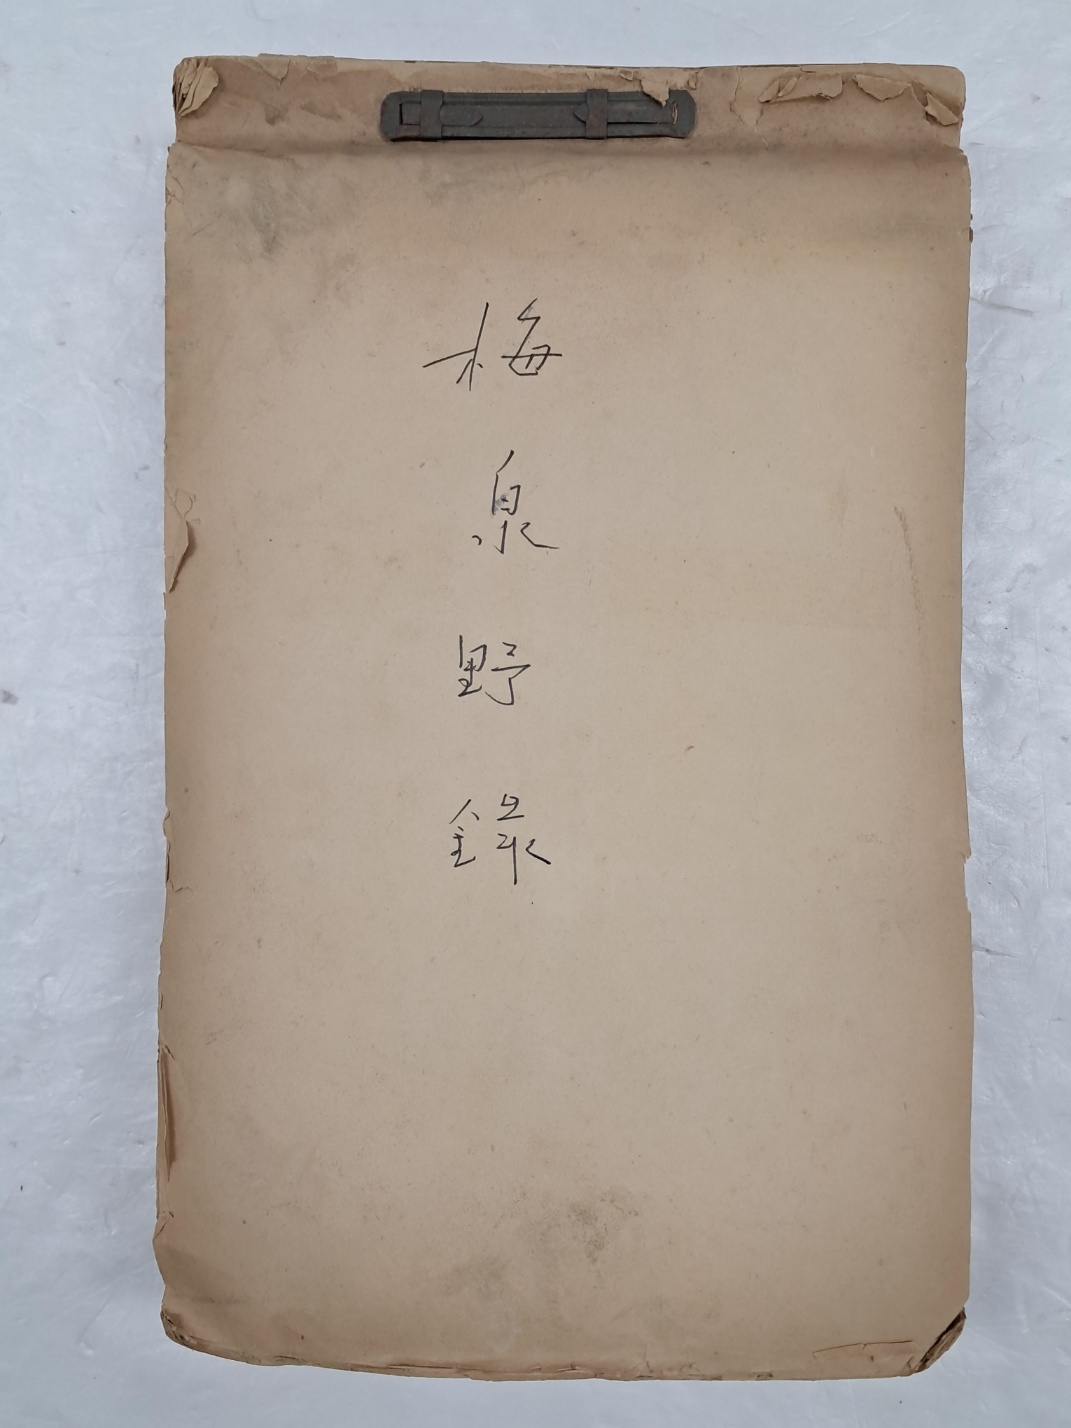 梅泉野錄